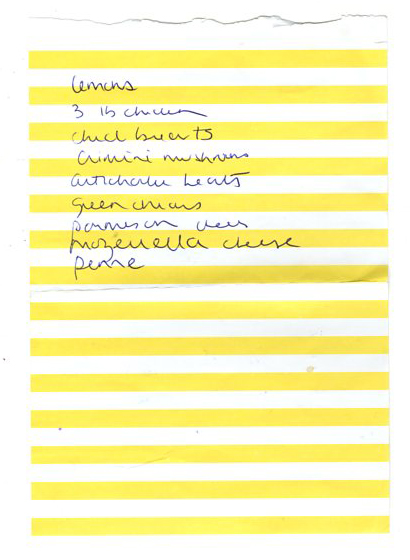 lemons
3 lb chicken
chick breasts
Crimini mushrooms
artichoke hearts
Green onions
parmesan chees
mozerella cheese
penne